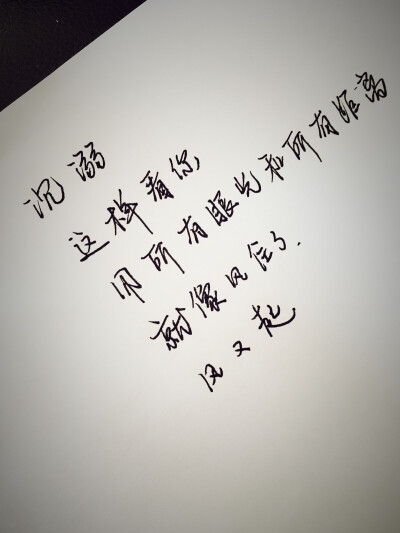 沉溺
这样看你
用所有眼光和所有距离
就像风住了.
风又起